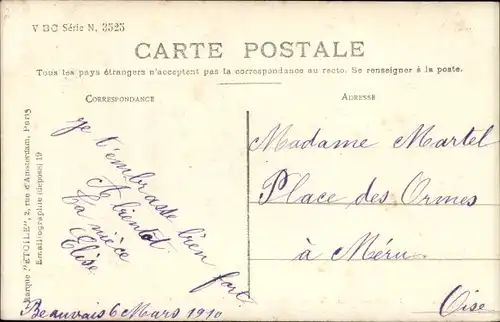 V BC Série N. 3525
CARTE POSTALE
Tous les pays étrangers n'acceptent pas la correspondance au recto. Se renseigner à la poste.
CORRESPONDANCE
ADRESSE
Je t'embrasse bien fort.
A bientôt
Ta nièce
Elise
Beauvais 6 Mars 1910
Madame Martel
Place des Ormes
à Méru.
Oise
Marque "ETOILE", 2, rue d'Amsterdam, Paris
Emaillographie (déposé) 19